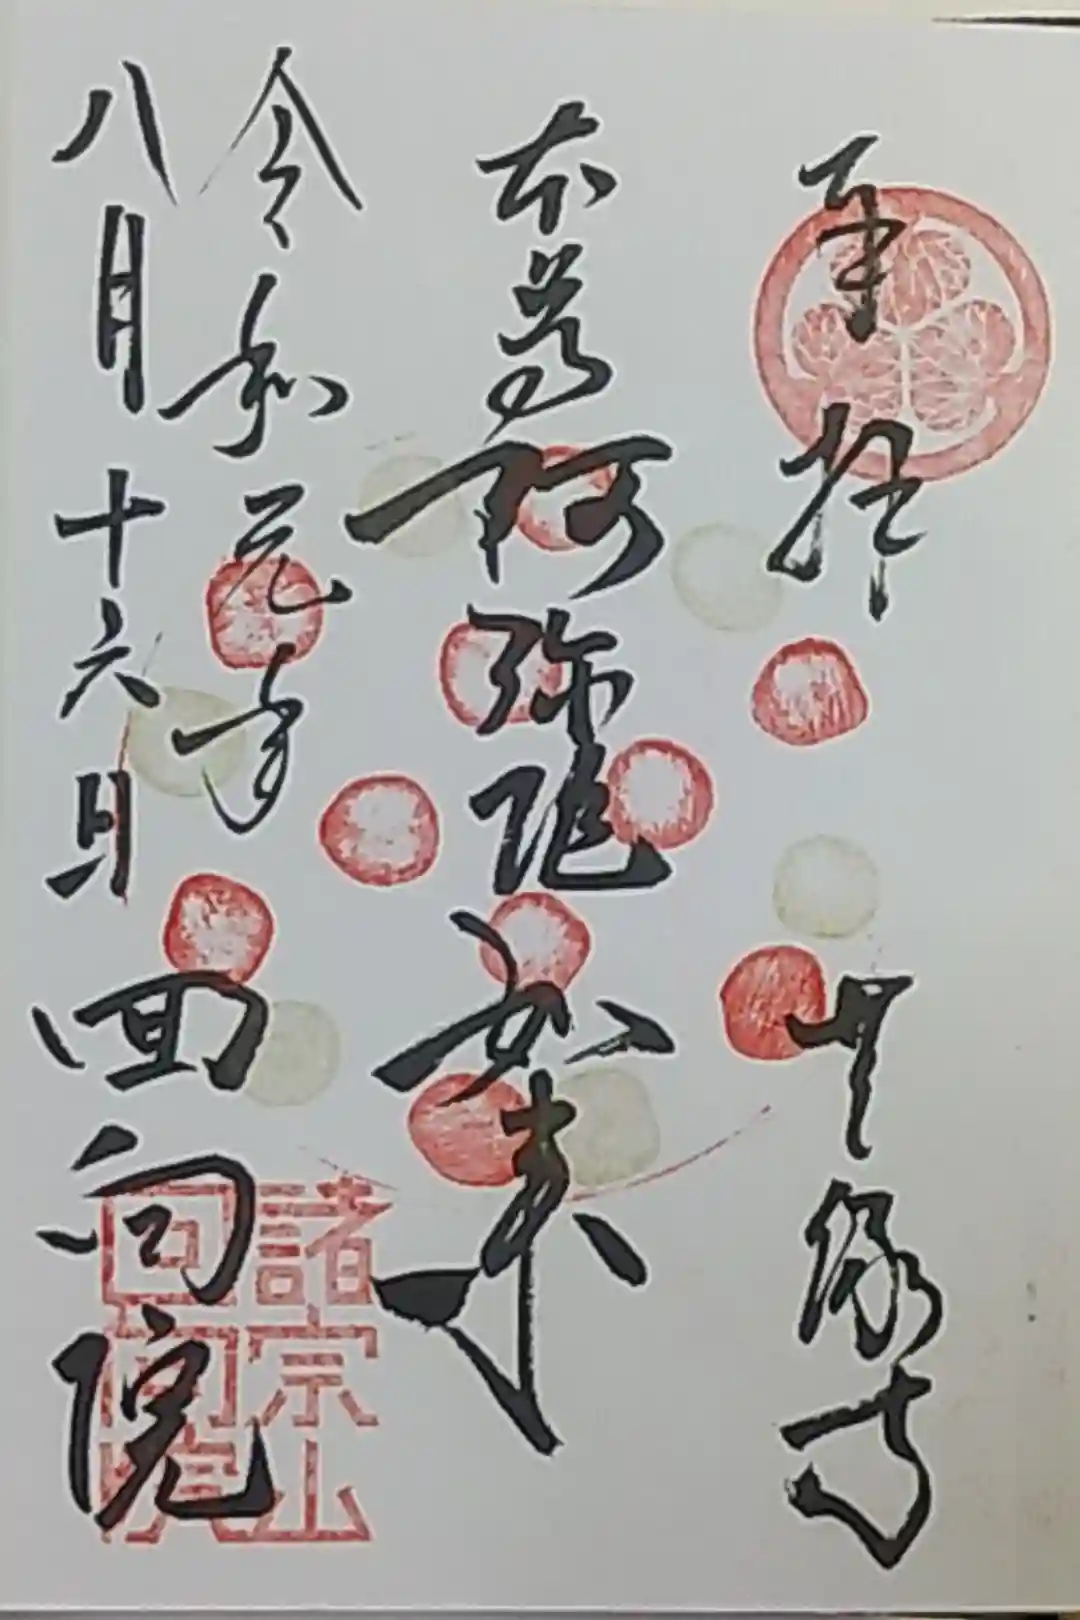 奉拝
無縁寺
本尊阿弥陀如来
令和元年
八月十六日
回向院
諸宗山
回向院